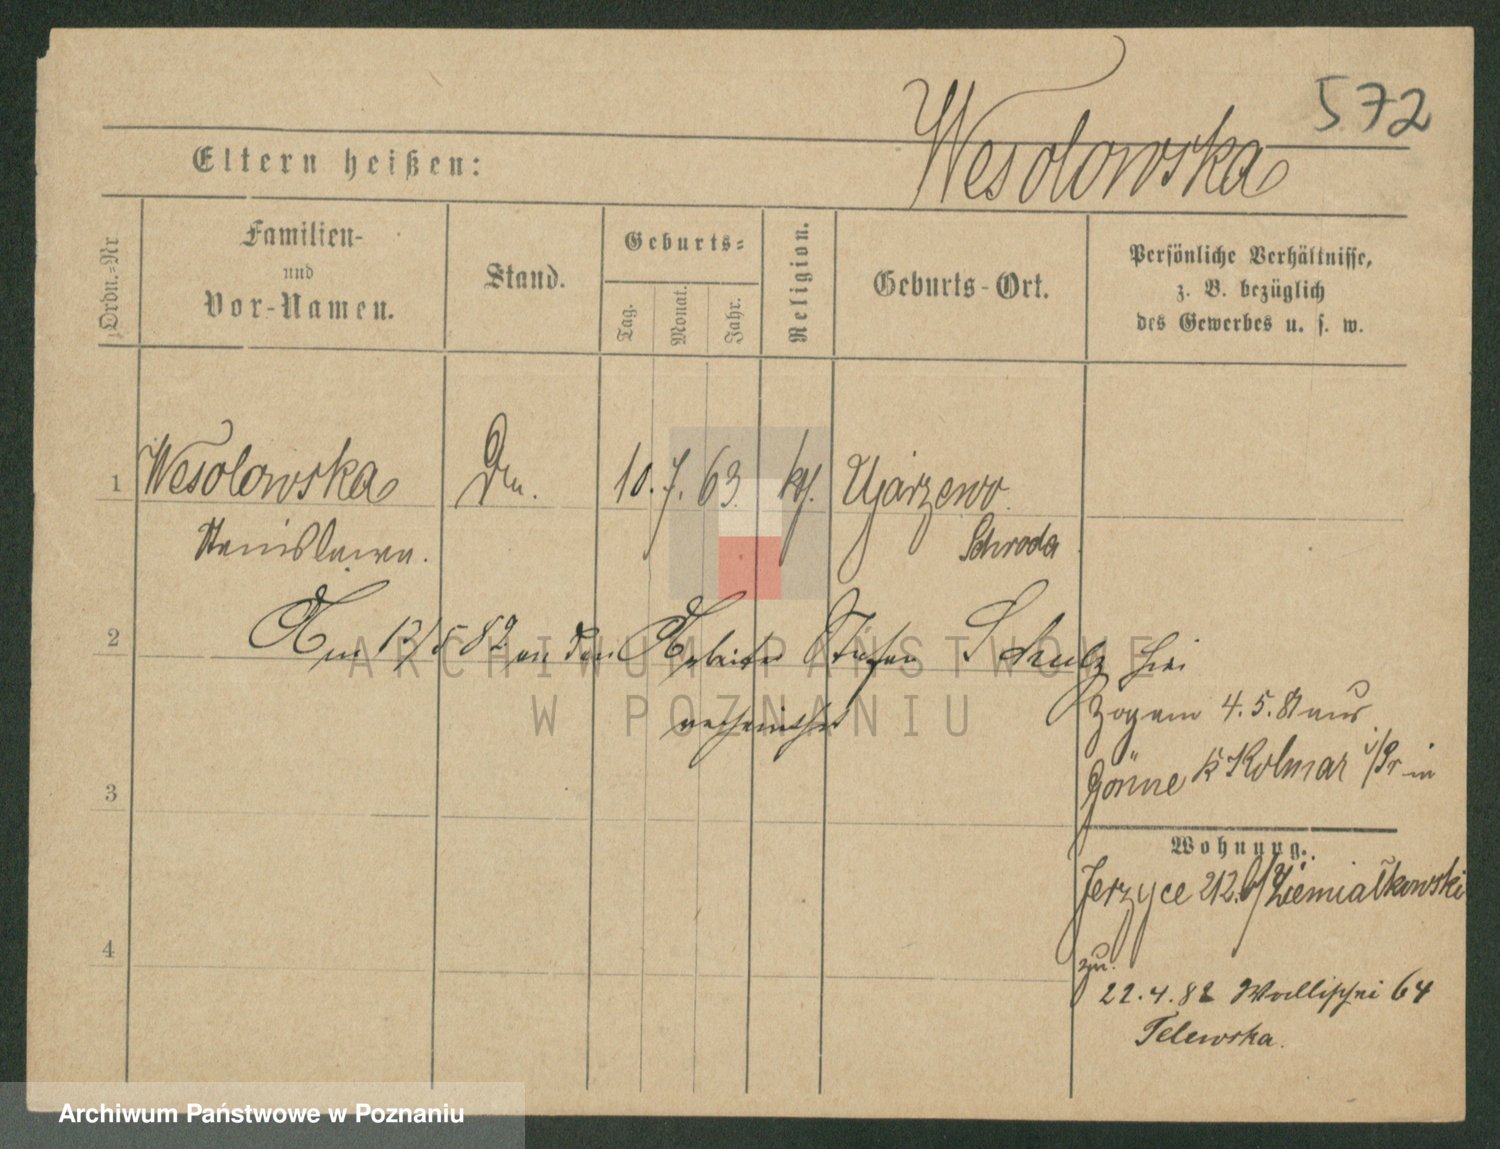 572
Wesolowska
Eltern heißen:
Ordn.-Nr
Familien-
und
Vor-Namen.
Stand.
Geburts-
Tag.
Monat.
Jahr.
Religion.
Geburts-Ort.
Persönliche Verhältnisse,
z. B. bezüglich
des Gewerbes u. s. w.
1 Wesolowska 10. 7. 63. kt. Ujarzewo
Stanislawa. Schroda
2 Am 17/5 82 an den Arbeiter Stefan Schulz hier
verheirathet
zog am 4. 5. 81 aus
Gönne K Kolmar i/Pr in
3
Wohnung.
Jerzyce 212.b/Ziemialkowski
4
zu.
22. 4. 82 Wallischei 64
Telewska.
ARCHIWUM PAŃSTWOWE
W POZNANIU
Archiwum Państwowe w Poznaniu